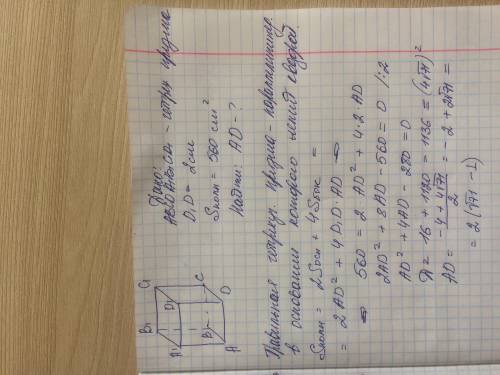 Дано:
ABCDA₁B₁C₁D₁ - четырх призма
D₁D = 2см
Sполн = 560 см²
Найти: AD - ?
B₁
C₁
A₁
D₁
B
C
A
D
Правильная четырхуг. призма - параллелепипед.
в основании которого лежит квадрат.
Sполн = 2Sосн + 4Sбок =
= 2AD² + 4D₁D·AD ⇒
⇒ 560 = 2·AD² + 4·2·AD
2AD² + 8AD - 560 = 0 /:2
AD² + 4AD - 280 = 0
D = 16 + 1120 = 1136 = (4√71)²
AD = (-4 + 4√71)/2 = -2 + 2√71 =
= 2(√71 - 1)